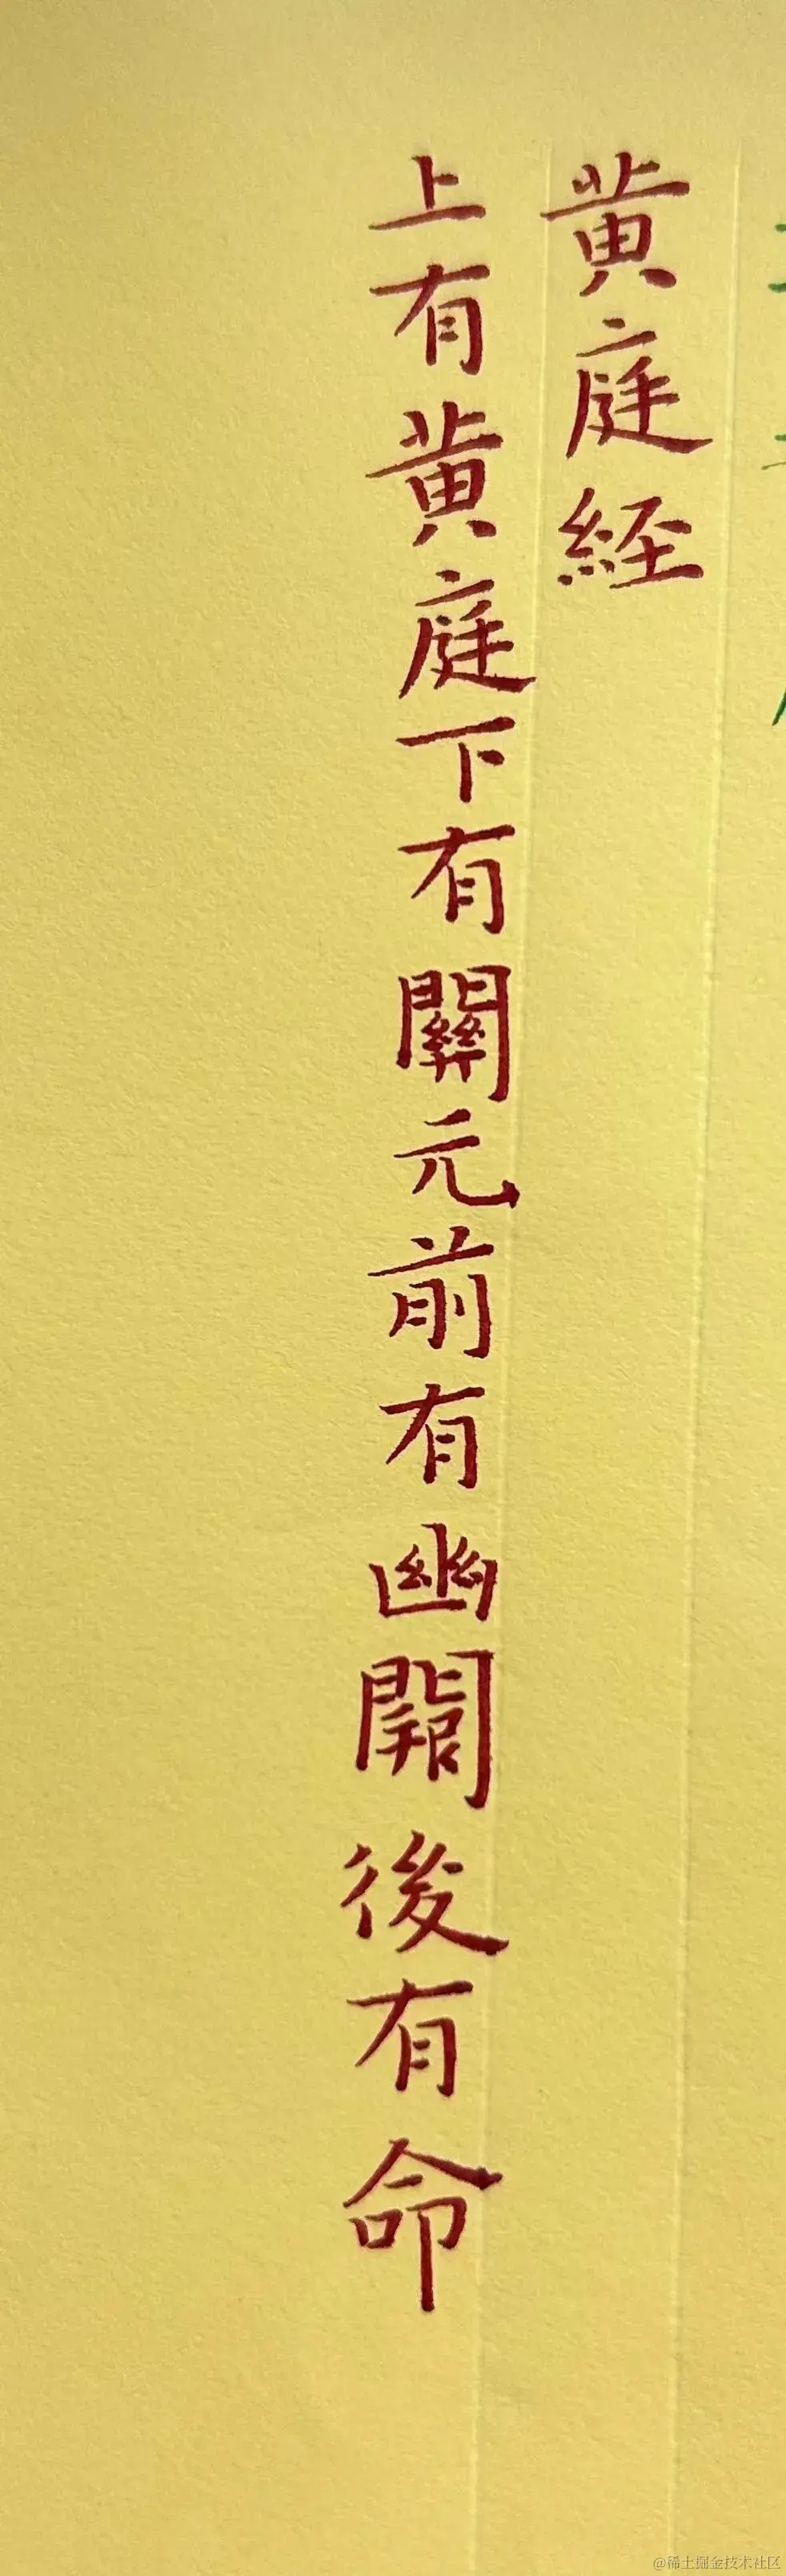 黄庭經
上有黄庭下有關元前有幽闕後有命
@稀土掘金技术社区